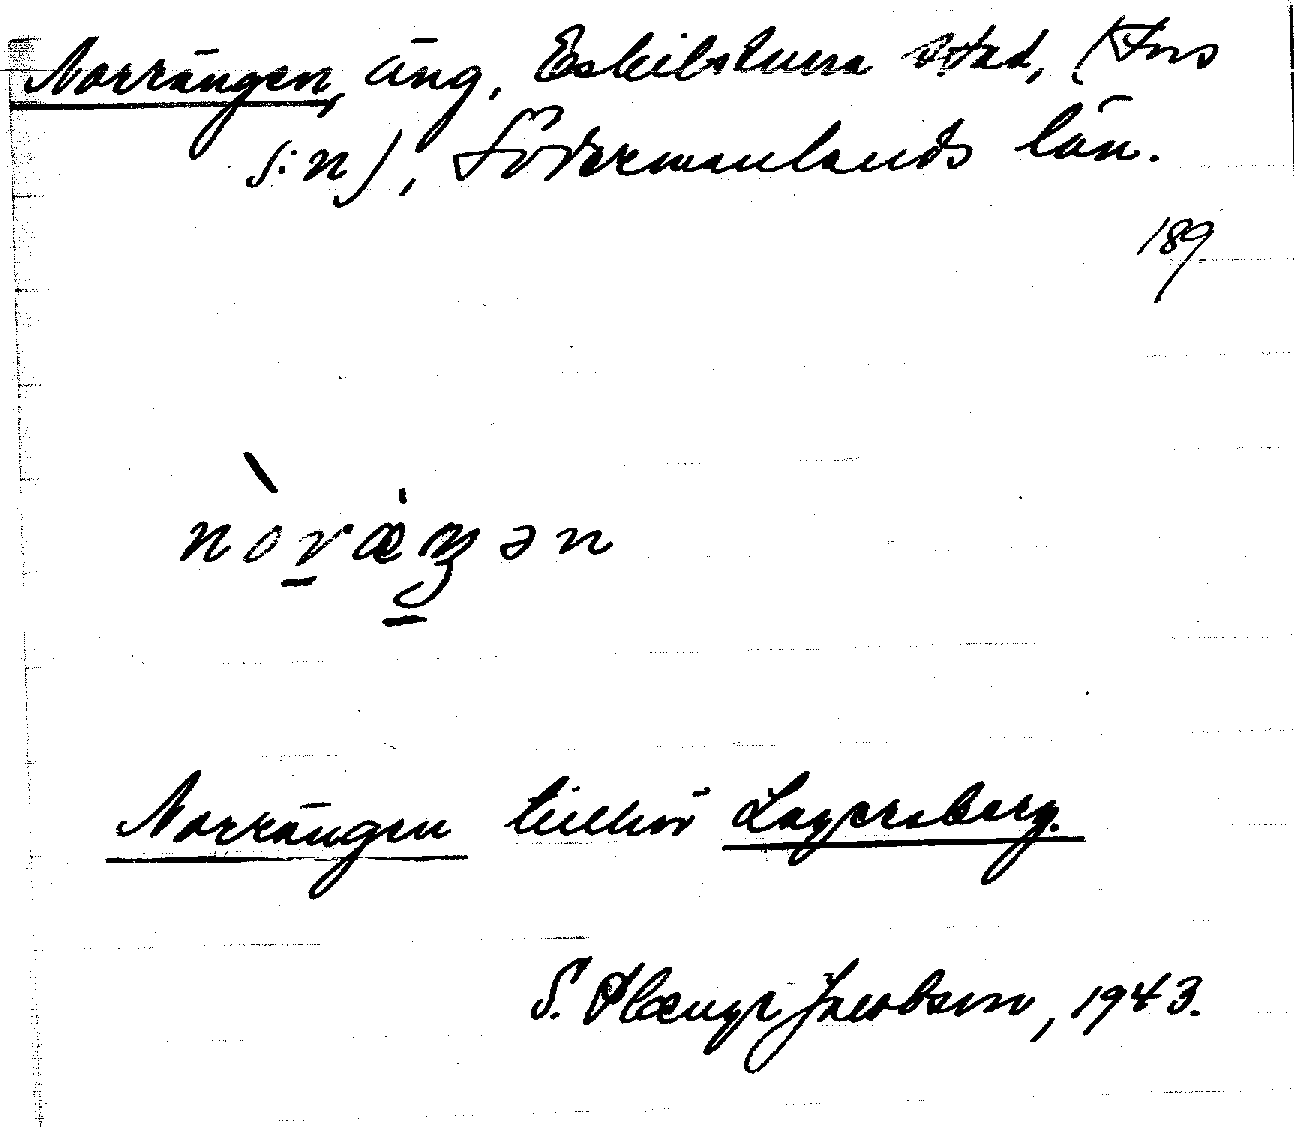 Norrängen, äng, Eskilstuna stad, (Fors
s:n), Södermanlands län.
189
nòræŋən
Norrängen tillhör Lagersberg.
S. Jacobson, 1943.